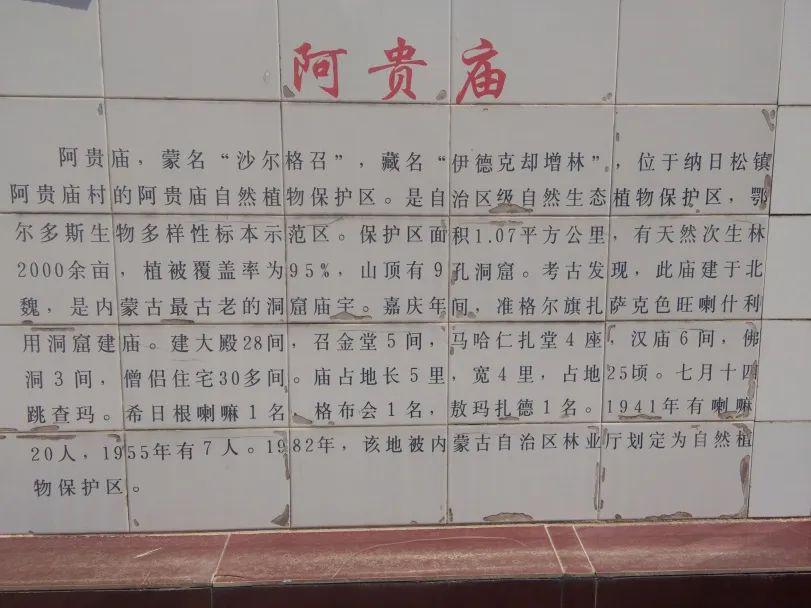 阿贵庙
阿贵庙，蒙名“沙尔格召”，藏名“伊德克却增林”，位于纳日松镇
阿贵庙村的阿贵庙自然植物保护区。是自治区级自然生态植物保护区，鄂
尔多斯生物多样性标本示范区。保护区面积1.07平方公里，有天然次生林
2000余亩，植被覆盖率为95%，山顶有9孔洞窟。考古发现，此庙建于北
魏，是内蒙古最古老的洞窟庙宇。嘉庆年间，准格尔旗扎萨克色旺喇什利
用洞窟建庙。建大殿28间，召金堂5间，马哈仁扎堂4座，汉庙6间，佛
洞3间，僧侣住宅30多间。庙占地长5里，宽4里，占地25顷。七月十四
跳查玛。希日根喇嘛1名，格布会1名，敖玛扎德1名。1941年有喇嘛
20人，1955年有7人。1982年，该地被内蒙古自治区林业厅划定为自然植
物保护区。